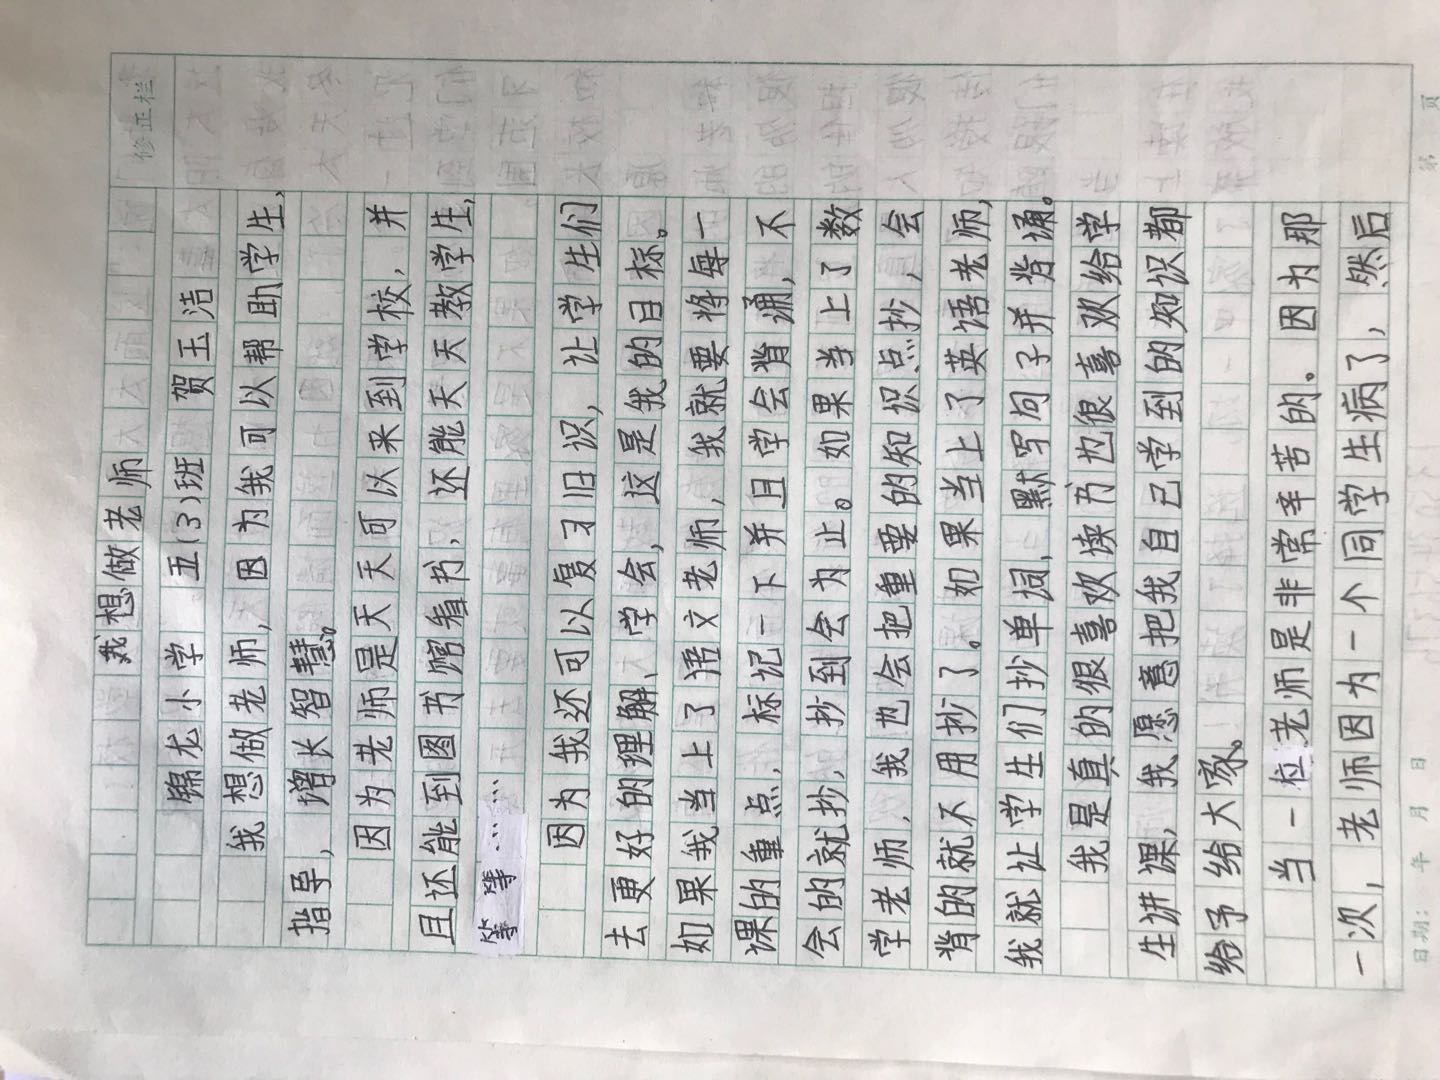 修正栏
我想做老师
锦尤小学 五(3)班 贺玉洁
我想做老师,因为我可以帮助学生,
指导,增长智慧。
因为老师是天天可以来到学校,并
且还能到图书馆看书,还能天天教学生,
等等……
因为我还可以复习旧识,让学生们
去更好的理解、学会,这是我的目标。
如果我当上了语文老师,我就要将每一
课的重点,标记一下并且学会背诵,不
会的就抄,抄到会为止。如果当上了数
学老师,我也会把重要的知识点抄,会
背的就不用抄了。如果当上了英语老师,
我就让学生们抄单词,默写句子并背诵。
我是真的很喜欢读书也很喜欢给学
生讲课,我愿意把我自己学到的知识都
给予给大家。
当一位老师是非常辛苦的。因为那
一次,老师因为一个同学生病了,然后
日期: 年 月 日 第 页